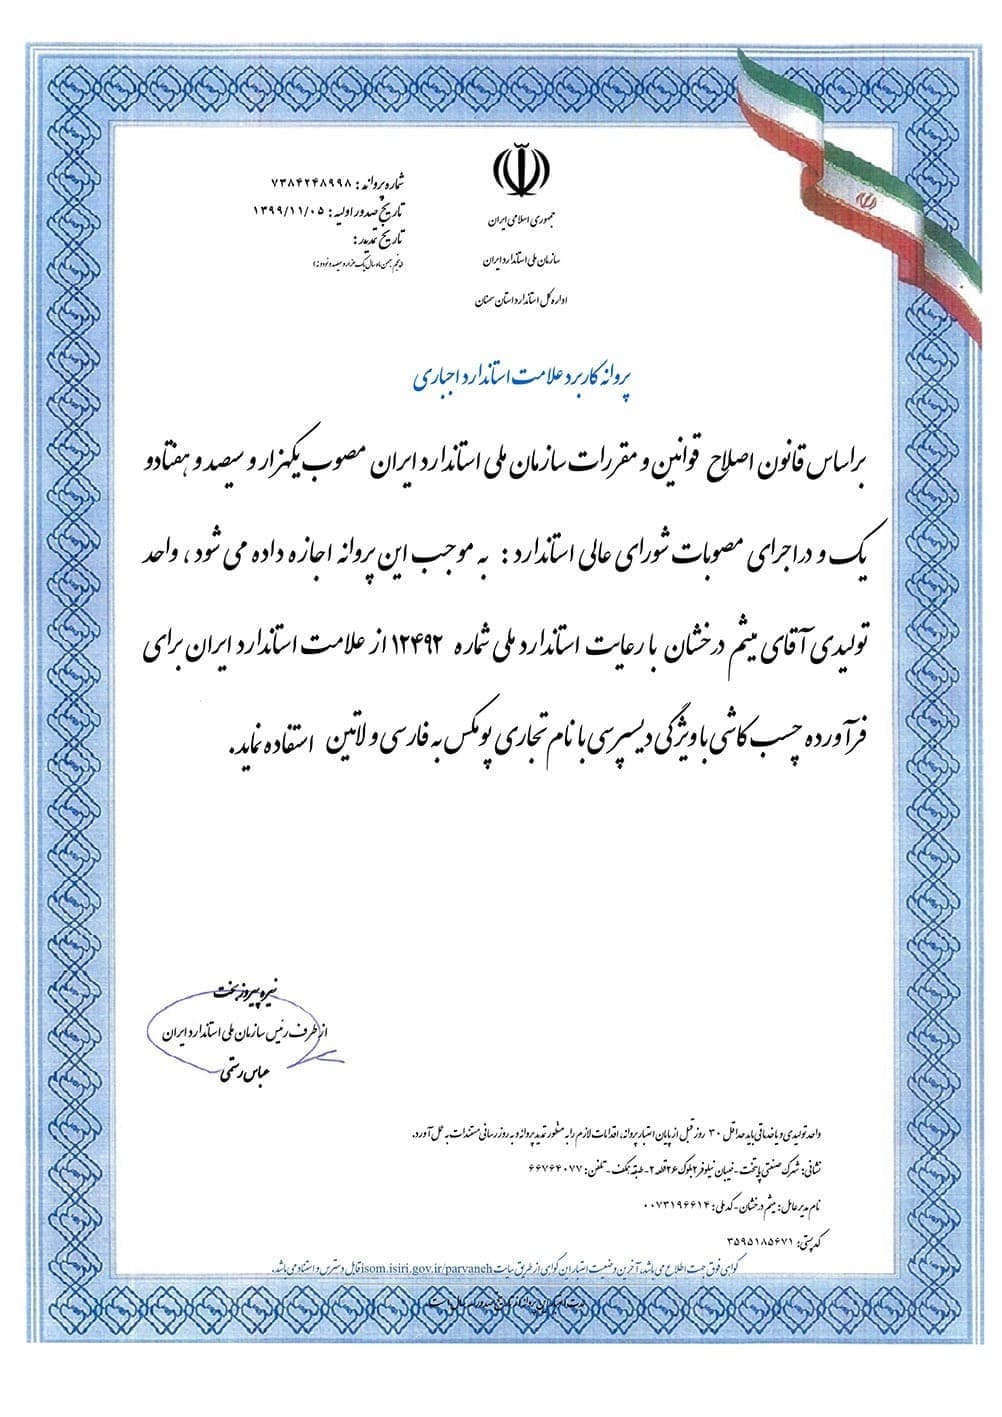 جمهوری اسلامی ایران
سازمان ملی استاندارد ایران
اداره کل استاندارد استان سمنان
شماره پروانه: ۷۳۸۴۲۴۸۹۹۸
تاریخ صدور اولیه: ۱۳۹۹/۱۱/۰۵
تاریخ تمدید:
(پنجم بهمن ماه سال یک هزار و سیصد و نود و نه)
پروانه کاربرد علامت استاندارد اجباری
براساس قانون اصلاح قوانین و مقررات سازمان ملی استاندارد ایران مصوب یکهزار و سیصد و هفتاد و
یک و در اجرای مصوبات شورای عالی استاندارد: به موجب این پروانه اجازه داده می شود، واحد
تولیدی آقای میثم درخشان با رعایت استاندارد ملی شماره ۱۲۴۹۲ از علامت استاندارد ایران برای
فرآورده چسب کاشی با ویژگی دیسپرسی با نام تجاری پومکس به فارسی و لاتین استفاده نماید.
نیره پیروز بخت
از طرف رئیس سازمان ملی استاندارد ایران
عباس رستمی
واحد تولیدی و یا خدماتی باید حداقل ۳۰ روز قبل از پایان اعتبار پروانه، اقدامات لازم را به منظور تمدید پروانه و به روز رسانی مستندات به عمل آورد.
نشانی: شهرک صنعتی پایتخت - خیابان نیلوفر ۲ بلوک ۲۶ قطعه ۲ - طبقه همکف - تلفن: ۶۶۷۶۴۰۷۷
نام مدیر عامل: میثم درخشان - کد ملی: ۰۰۷۳۱۹۶۶۱۴
کد پستی: ۳۵۹۵۱۸۵۶۷۱
گواهی فوق جهت اطلاع می باشد، آخرین وضعیت اعتبار این گواهی از طریق سایت isom.isiri.gov.ir/parvaneh قابل دسترس و استناد می باشد.